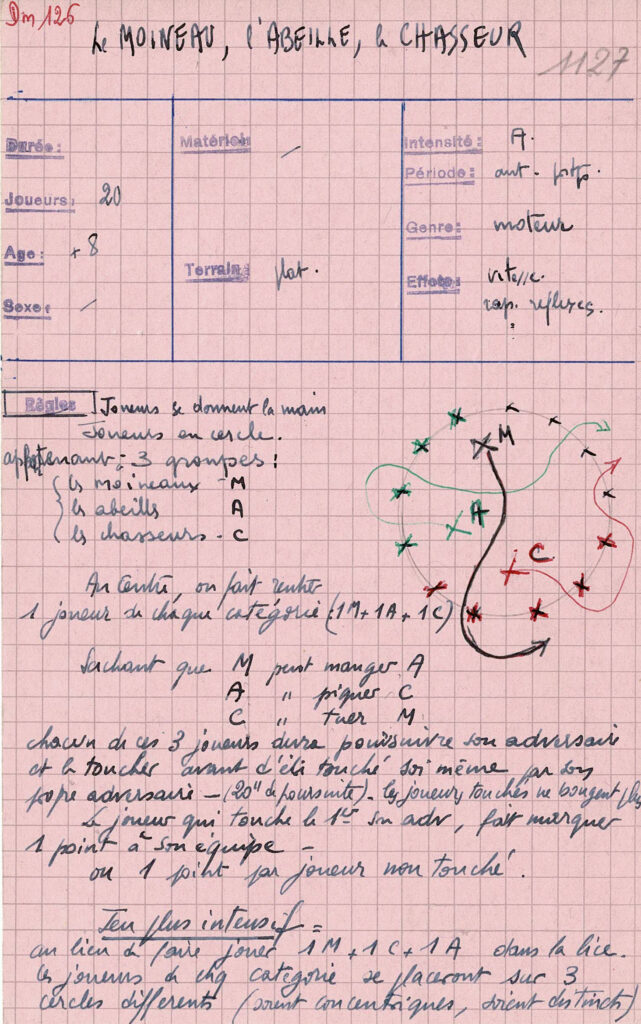 Dm 126
Le MOINEAU, l'ABEILLE, le CHASSEUR
1127
Durée:
Joueurs: 20
Age: + 8
Sexe: /
Matériel: /
Terrain: plat.
Intensité: A.
Période: ant.
Genre: moteur
Effets: vitesse.
rap. reflexes.
Règles Joueurs se donnent la main
Joueurs en cercle.
appartenant à 3 groupes :
les moineaux - M
les abeilles A
les chasseurs - C
M
A
C
Au Centre, on fait rentrer
1 joueur de chaque catégorie (1M + 1A + 1C)
Sachant que M peut manger A
A " piquer C
C " tuer M
chacun de ces 3 joueurs devra poursuivre son adversaire
et le toucher avant d'été touché soi même par son
propre adversaire - (20" de poursuite). les joueurs touchés ne bougent plus
Le joueur qui touche le 1er son adv, fait marquer
1 point à son équipe -
ou 1 point par joueur non touché.
Jeu plus intensif =
au lieu de faire jouer 1M + 1C + 1A dans la lice.
les joueurs de chq catégorie se placeront sur 3
cercles différents (soient concentriques, soient distincts)